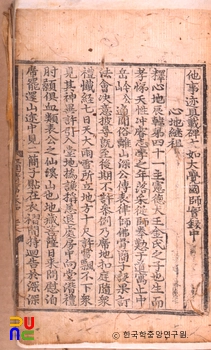 他事迹具載碑文如大覺國師實錄中
心地繼祖
釋心地辰韓第四十一主憲德大王金氏之子也生而
孝悌天性冲睿志學之年落采從師拳懃于道寓止中
岳今公山適聞俗離山深公傳表律師佛骨簡子設果訂
法會決意披尋既至後期不許參例乃席地扣庭隨衆
禮懺經七日天大雨雪所立地方十尺許雪飄不下衆
見其神異許引入堂地撝謙稱恙退處房中向堂潛禮
肘顙俱血類表公之仙溪山也地藏菩薩日來問慰洎
席罷還山途中見二簡子貼在衣褶間持迴告於深
한국학중앙연구원